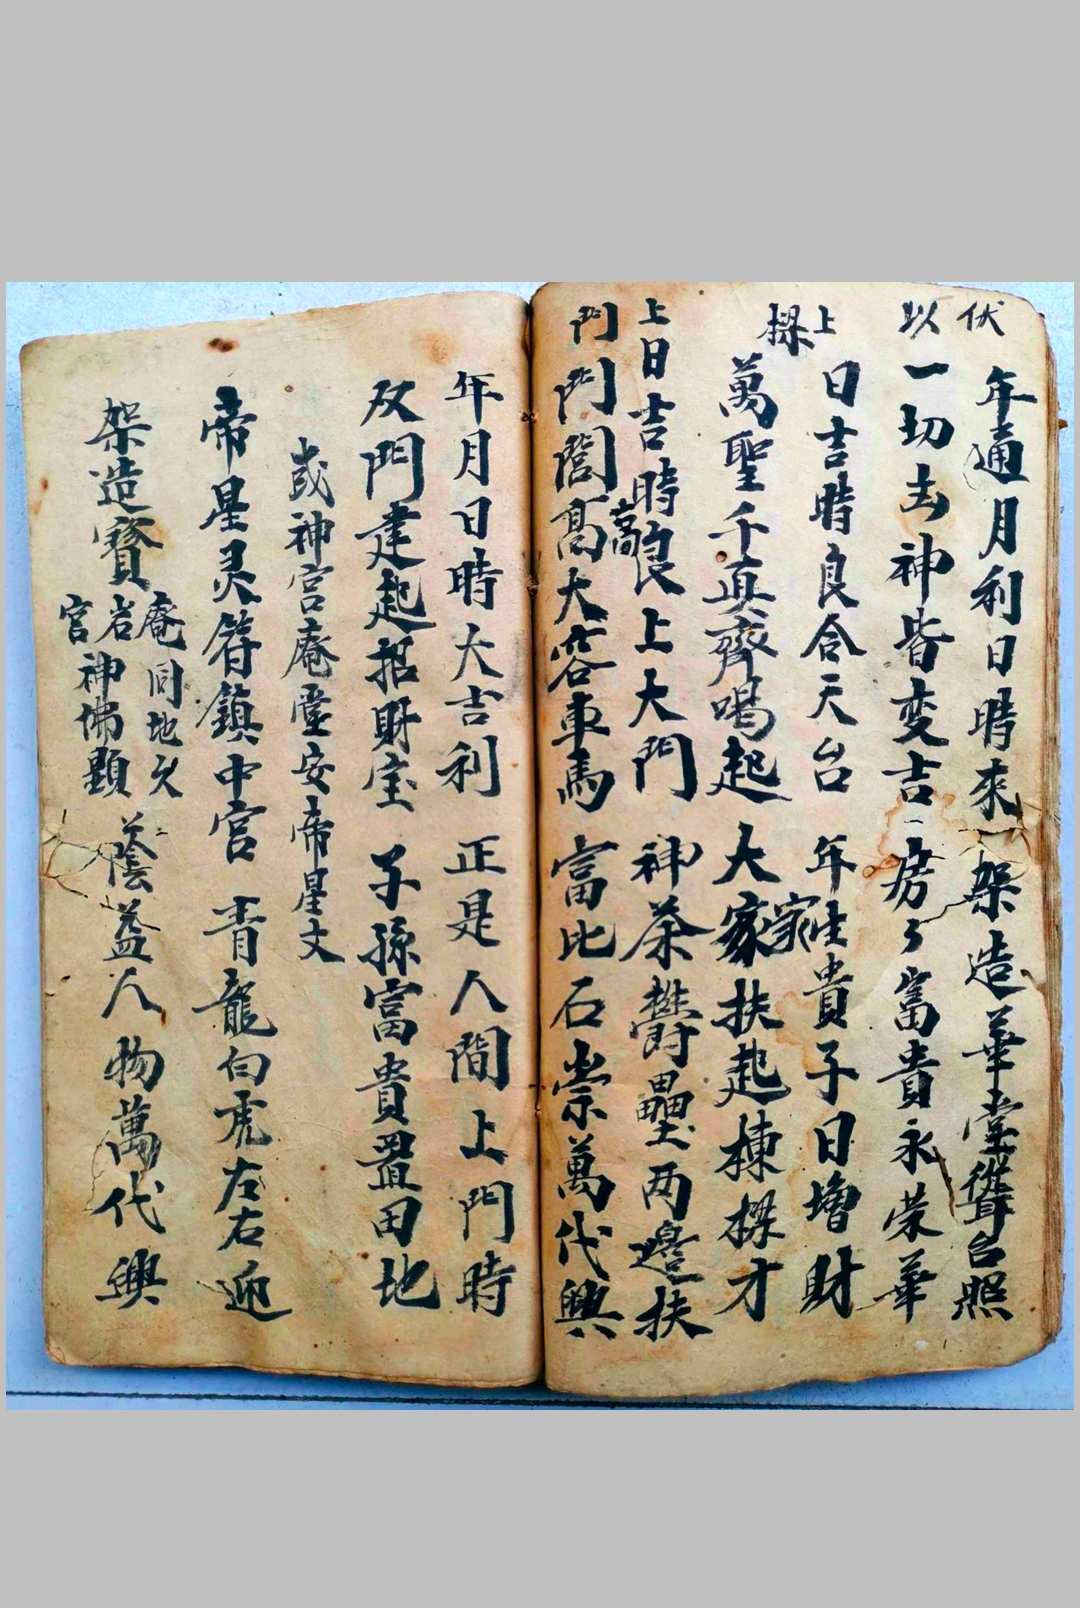 伏以
年通月利日時來 架造華堂聳台照
一切吉神皆变吉 房々富貴永荣華
上樑
日吉時良合天台 年生貴子日增財
萬聖千真齊喝起 大家扶起棟樑才
上門
日吉時良上大門 神荼欝壘两邉扶
門閭髙大容車馬 富比石崇萬代興
年月日時大吉利 正是人間上門時
双門建起招財宝 子孫富貴置田地
或神宫庵堂安帝星文
帝星灵符鎮中宫 青龍白虎左右迎
架造寳庵岩宫
同地久神佛顯 蔭益人物萬代興